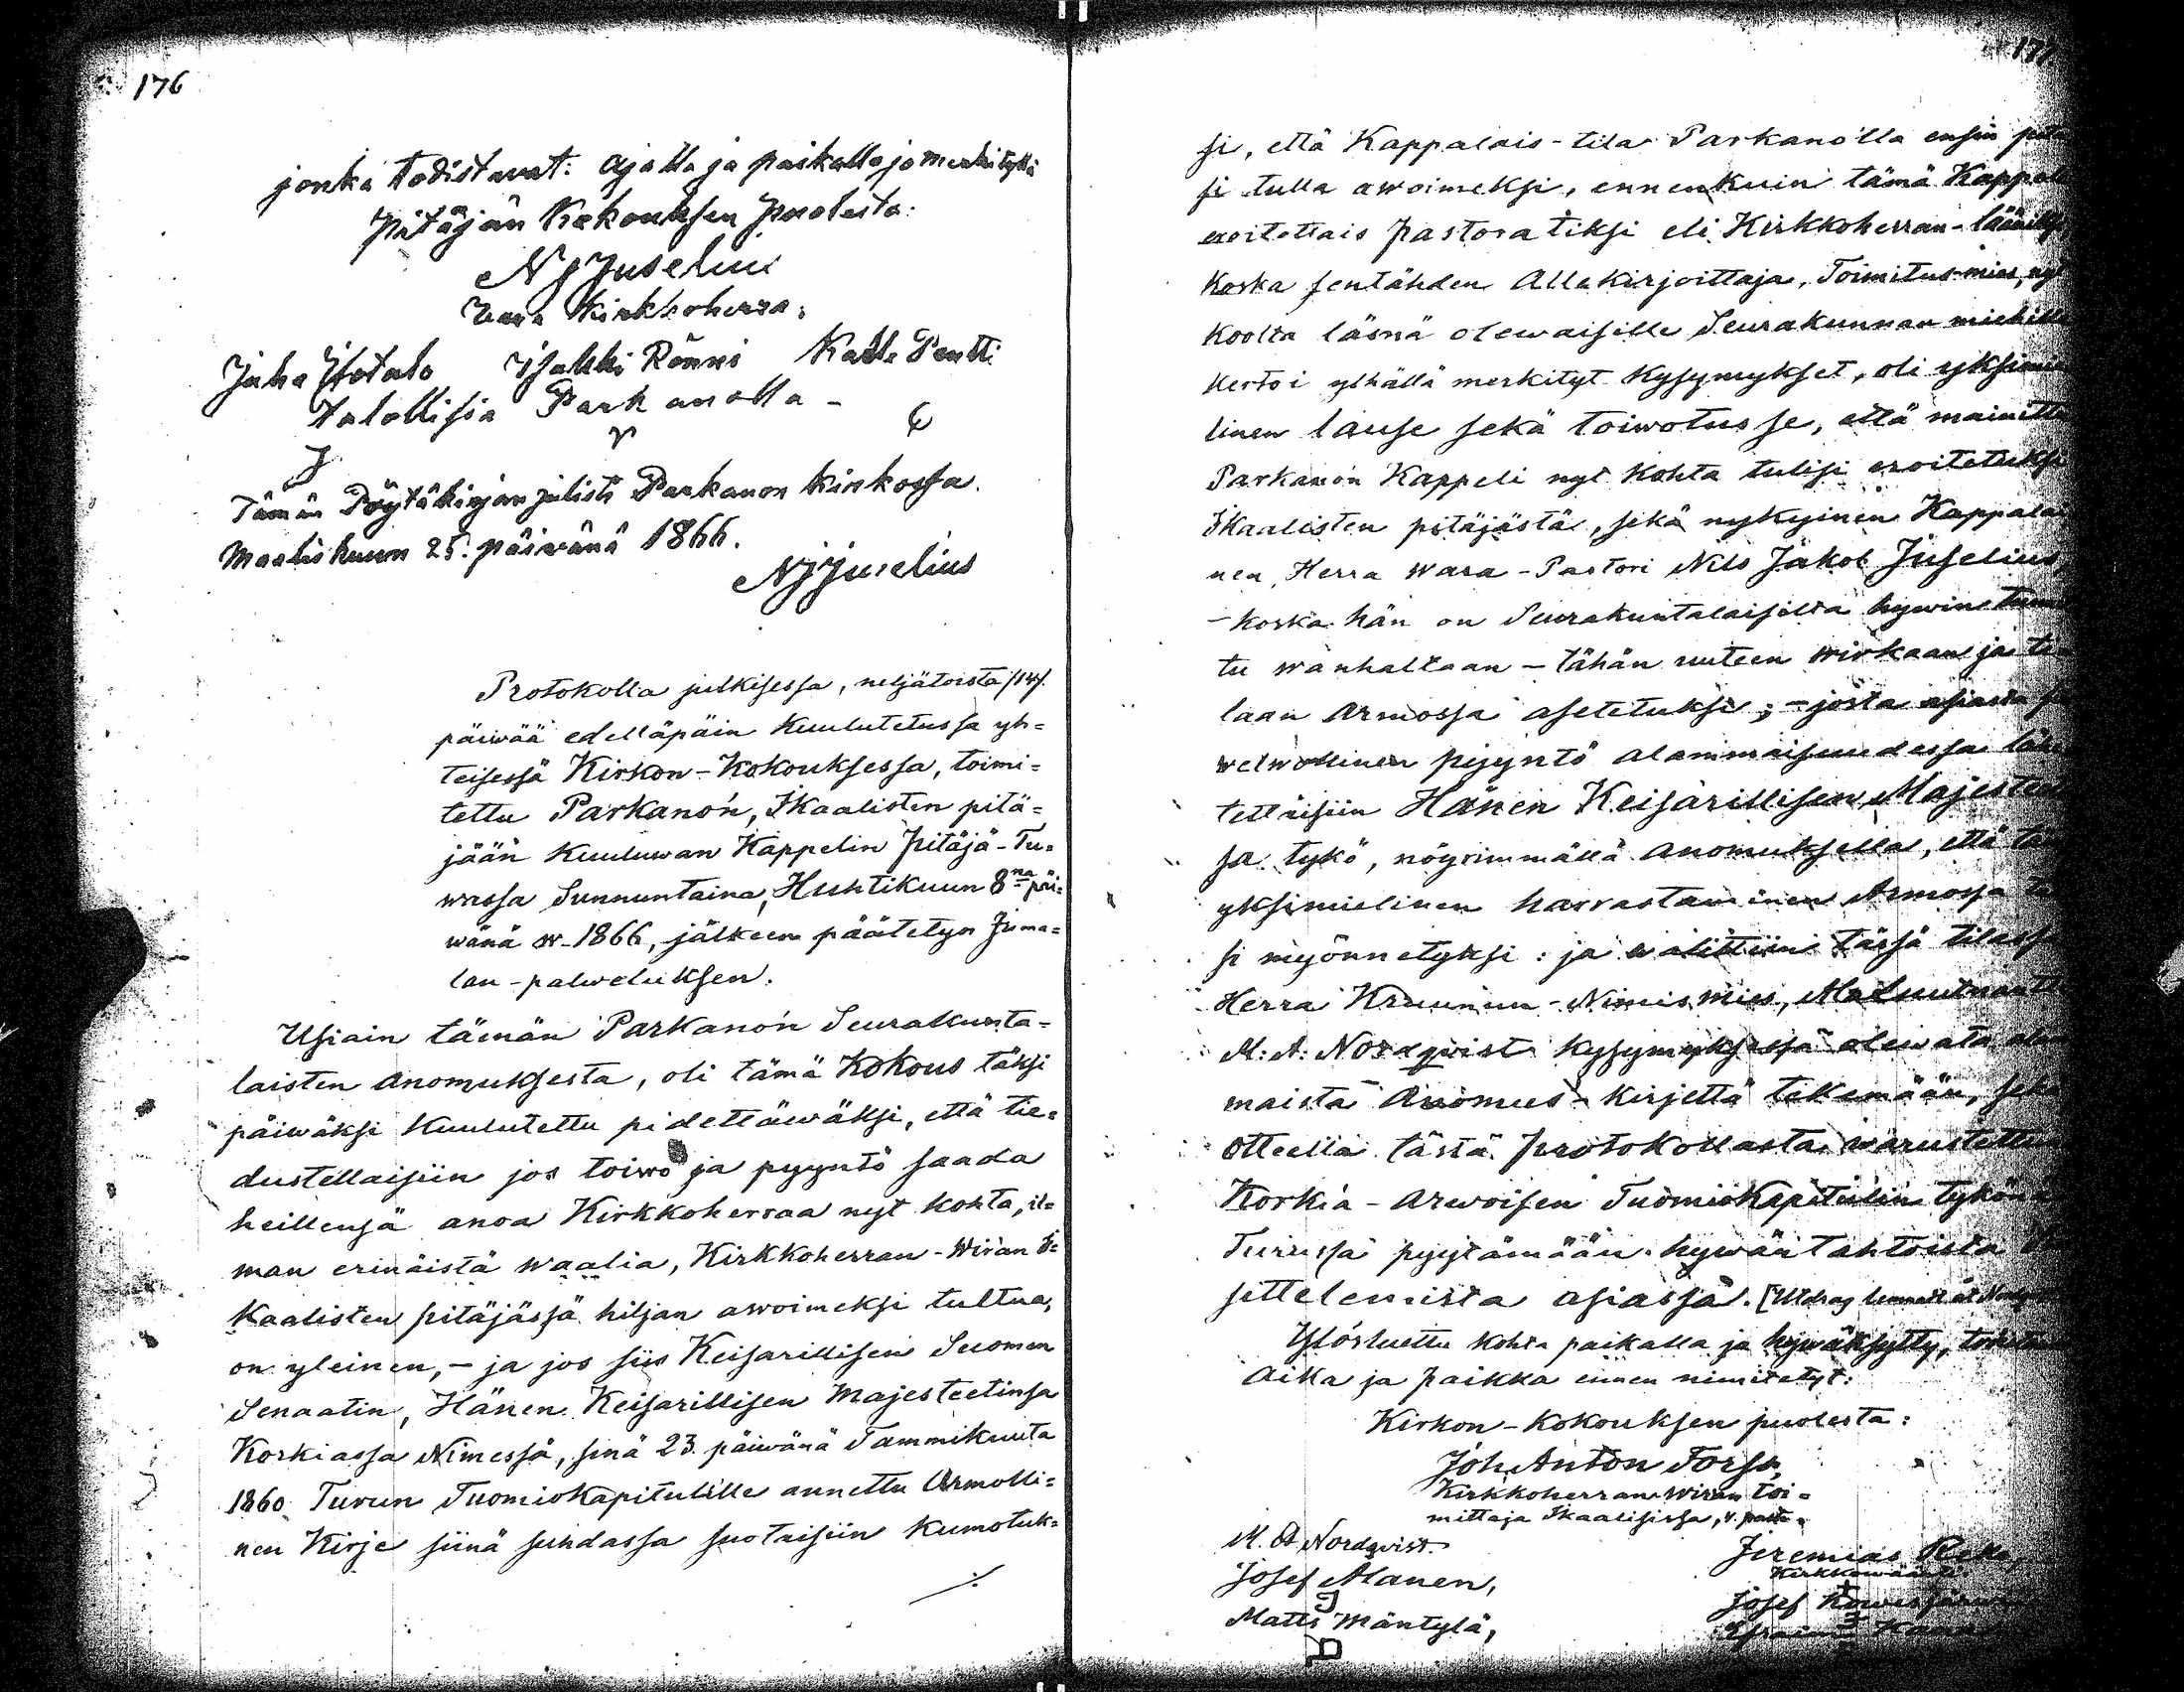 176
jonka todistavat: Ajalla ja paikalla jo merkityllä
Pitäjän Kokouksen puolesta:
N J Juselius
Wara Kirkkoherra:
Juha Yotalo Iisakki Rönni Kalle Pentti
talollisia Parkanolla -
Tämän Pöytäkirjan julisti Parkanon kirkossa
Maaliskuun 25. päiwänä 1866.
N J Juselius
Protokolla julkisessa, neljätoista /14/.
päiwää edelläpäin Kuulutetussa yh=
teisessä Kirkon-Kokouksessa, toimi=
tettu Parkano'n, Ikaalisten pitä=
jään Kuuluwan Kappelin Pitäjä-Tu=
wassa Sunnuntaina, Huhtikuun 8na päi=
wänä w. 1866, jälkeen päätetyn Juma=
lan-palweluksen.
Usiain tämän Parkano'n Seurakunta=
laisten anomuksesta, oli tämä Kokous täksi
päiwäksi Kuulutettu pidettäwäksi, että tie=
dustellaisiin jos toiwo ja pyyntö saada
heillensä anoa Kirkkoherraa nyt kohta, il=
man erinäistä waalia, Kirkkoherran-Wiran I=
kaalisten pitäjässä hiljan awoimeksi tultua,
on yleinen, - ja jos siis Keisarillisen Suomen
Senaatin, Hänen Keisarillisen Majesteetinsa
Korkiassa Nimessä, sinä 23. päiwänä Tammikuuta
1860 Turun Tuomiokapitulille annettu Armolli=
nen Kirje siinä suhdassa suotaisiin Kumotuk=
./.
177
si, että Kappalais-tila Parkanolla ensin pitä
si tulla awoimeksi, ennenkuin tämä Kappeli
eroitettais Pastoratiksi eli Kirkkoherran-lääniksi
Koska sentähden Allekirjoittaja, Toimitus-mies, nyt
Koolta läsnä olewaisille Seurakunnan miehille
Kertoi ylhällä merkityt Kysymykset, oli yksimie
linen lause sekä toiwotus se, että mainittu
Parkano'n Kappeli nyt Kohta tulisi eroitetuksi
Ikaalisten pitäjästä, sekä nykyinen Kappalai
nen, Herra Wara-Pastori Nils Jakob Juselius
- koska hän on Seurakuntalaisilta hywin tun
tu wanhaltaan - tähän uuteen wirkaan ja ti
laan Armossa asetetuksi; - josta asiasta
welwollinen pyyntö alammaisuudessa lähe
tettäisiin Hänen Keisarillisen Majestee
sa tykö, nöyrimmällä anomuksella, että tämä
yksimielinen harrastaminen Armossa
si myönnetyksi: ja walittiin tässä tilassa
Herra Kruunun-Nimismies,
M: A: Nordqvist Kysymyksessä olewata ala
maista Anomus-Kirjettä tekemään, sekä
Otteella tästä Protokollasta warustettuna
Korkia-Arwoisen Tuomiokapitulin tykönä
Turussa pyytämään hywäntahtoista
sittelemista asiassa. [Utdrag lemnadt åt Nordqvist
Ylösluettu kohta paikalla ja hywäksytty, todistetaan
Aika ja paikka ennen nimitetyt:
Kirkon-Kokouksen puolesta:
Joh. Anton Forss,
Kirkkoherran Wiran toi=
mittaja Ikaalisissa, v. past.
M. A. Nordqvist.
Josef Alanen,
Matts Mäntylä,
Jeremias
Kirkkowäärti
Josef